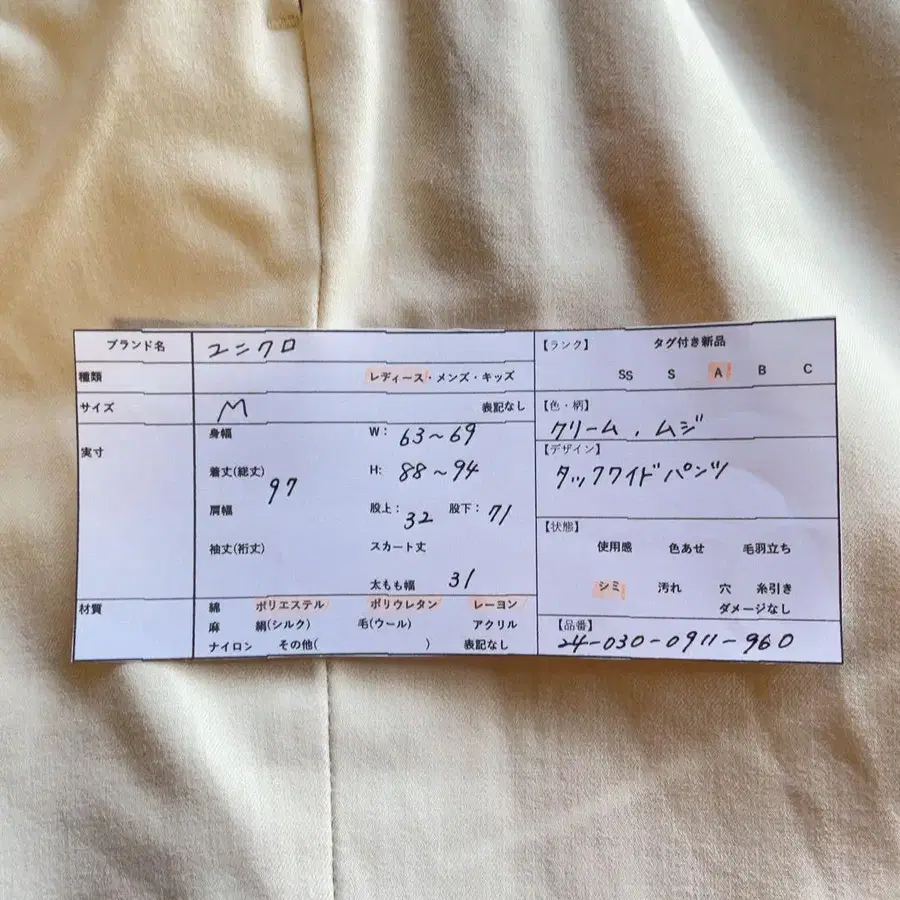 ブランド名 ユニクロ
種類 レディース・メンズ・キッズ
サイズ M 表記なし
実寸
身幅 W: 63~69
着丈(総丈) 97 H: 88~94
肩幅 股上: 32 股下: 71
袖丈(裄丈) スカート丈
太もも幅 31
材質 綿 ポリエステル ポリウレタン レーヨン
麻 絹(シルク) 毛(ウール) アクリル
ナイロン その他( ) 表記なし
【ランク】 タグ付き新品
SS S A B C
【色・柄】
クリーム、ムジ
【デザイン】
タックワイドパンツ
【状態】
使用感 色あせ 毛羽立ち
シミ 汚れ 穴 糸引き
ダメージなし
【品番】
24-030-0911-960